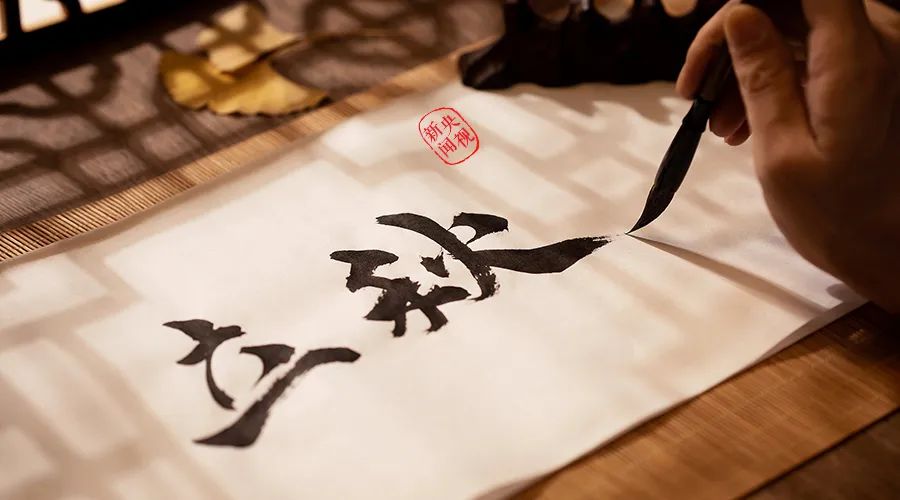 立秋
央视
新闻